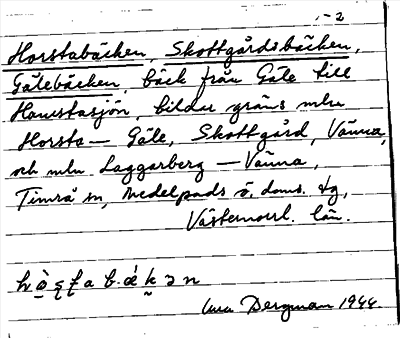 1-2
Horstabäcken, Skottgårdsbäcken,
Gälebäcken, bäck från Gäle till
Havstasjön, bildar gräns mln
Horsta — Gäle, Skottgård, Vänna,
och mln Laggarberg — Vänna,
Timrå sn, Medelpads ö. doms. tg,
Västernorrl. län.
Bergman 1944.